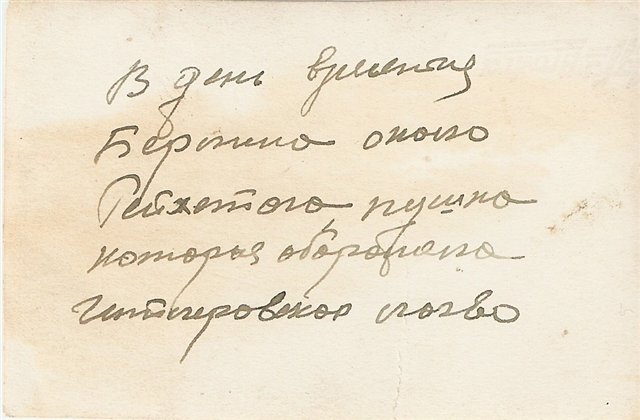 В день времения
Берлина около
Рейхстага пушка
которая обороняла
Гитлеровское логово